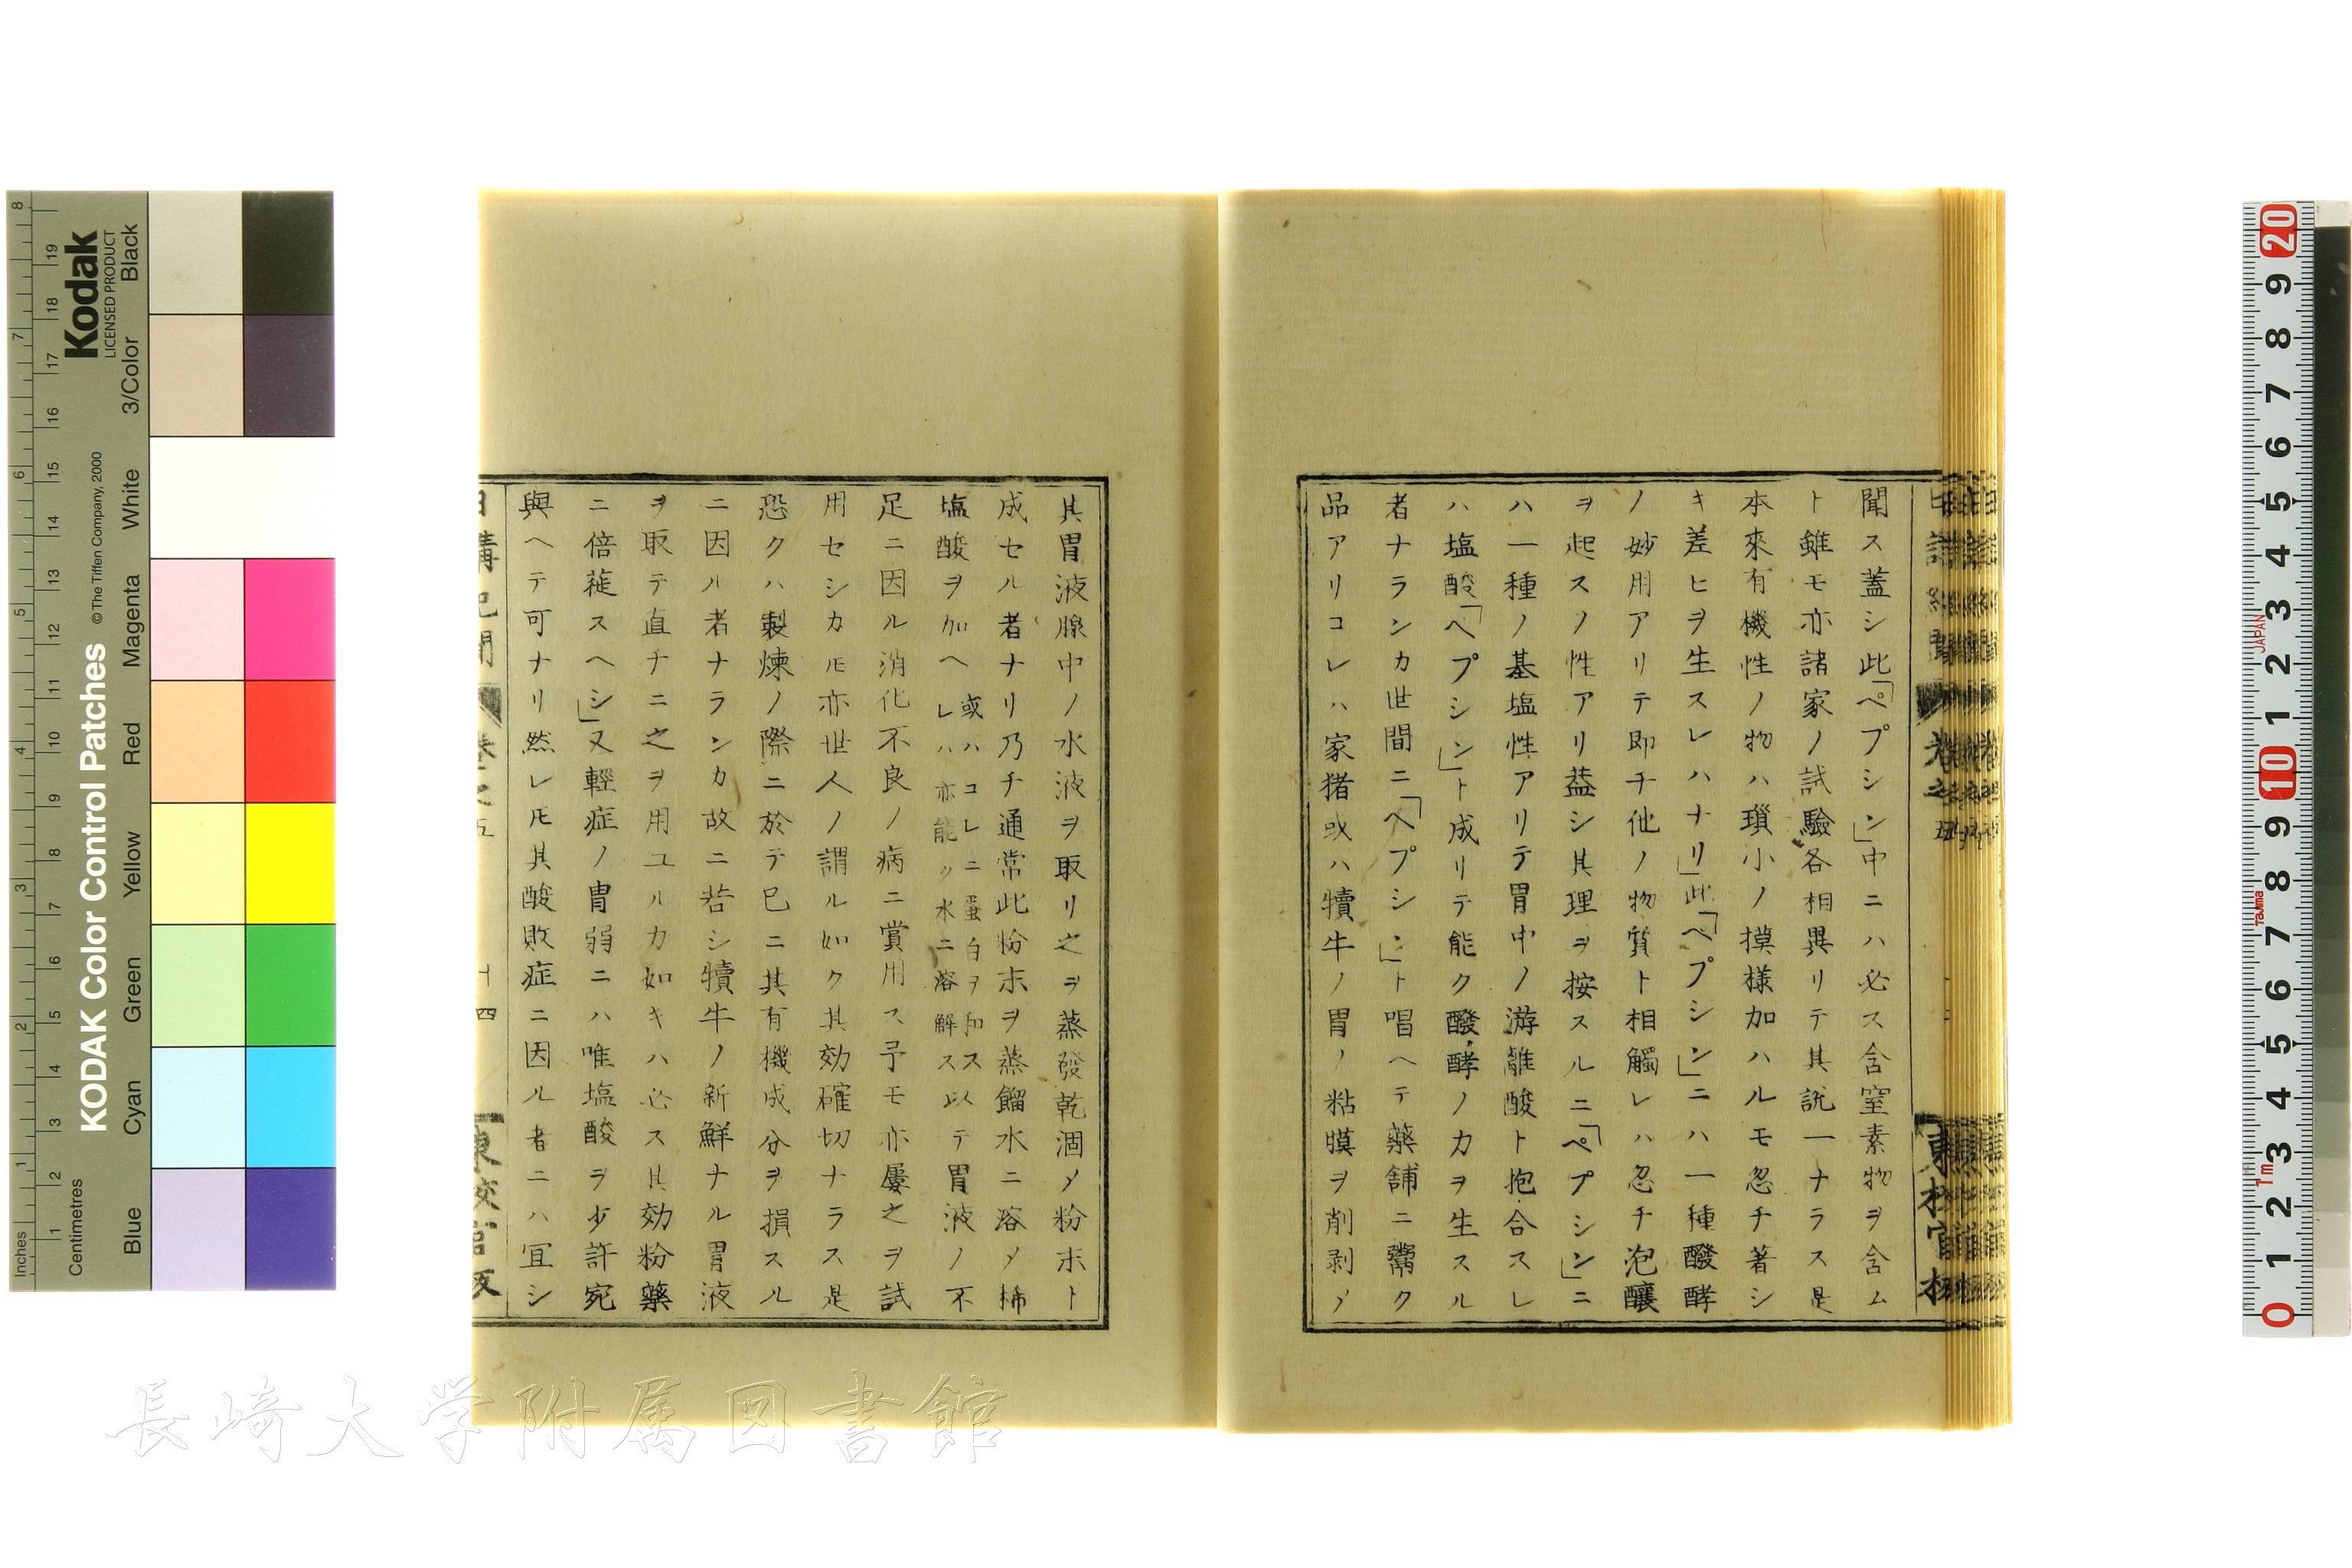 聞ス蓋シ此「ペプシン」中ニハ必ス含窒素物ヲ含ム
ト雖モ亦諸家ノ試驗各相異リテ其説一ナラス是
本來有機性ノ物ハ瑣小ノ摸様加ハルモ忽チ著シ
キ差ヒヲ生スレハナリ」此「ペプシン」ニハ一種醱酵
ノ妙用アリテ即チ他ノ物質ト相觸レハ忽チ泡釀
ヲ起スノ性アリ葢シ其理ヲ按スルニ「ペプシン」ニ
ハ一種ノ基塩性アリテ胃中ノ游離酸ト抱合スレ
ハ塩酸「ヘプシン」ト成リテ能ク醱酵ノ力ヲ生スル
者ナランカ世間ニ「ヘプシン」ト唱ヘテ藥舗ニ鬻ク
品アリコレハ家猪或ハ犢牛ノ胃ノ粘膜ヲ削剥メ
其胃液腺中ノ水液ヲ取リ之ヲ蒸發乾涸メ粉末ト
成セル者ナリ乃チ通常此粉末ヲ蒸餾水ニ溶メ稀
塩酸ヲ加ヘ
或ハコレニ蛋白ヲ和ス
レハ亦能ク水ニ溶解ス
以テ胃液ノ不
足ニ因ル消化不良ノ病ニ賞用ス予モ亦屢之ヲ試
用セシカ𪜈亦世人ノ謂ル如ク其効確切ナラス是
恐クハ製煉ノ際ニ於テ已ニ其有機成分ヲ損スル
ニ因ル者ナランカ故ニ若シ犢牛ノ新鮮ナル胃液
ヲ取テ直チニ之ヲ用ユルカ如キハ必ス其効粉藥
ニ倍蓰スヘシ」又輕症ノ胃弱ニハ唯塩酸ヲ少許宛
與ヘテ可ナリ然レ𪜈其酸敗症ニ因ル者ニハ宜シ
日講記聞 卷之五 十四 東校官版
長崎大学附属図書館
Kodak
LICENSED PRODUCT
KODAK Color Control Patches
© The Tiffen Company, 2000
Black
3/Color
White
Magenta
Red
Yellow
Green
Cyan
Blue
Inches
1 2 3 4 5 6 7 8
Centimetres
1 2 3 4 5 6 7 8 9 10 11 12 13 14 15 16 17 18 19
20
9
8
7
6
5
4
3
2
1
10
9
8
7
6
5
4
3
2
1
0
JAPAN
Tajima
1m